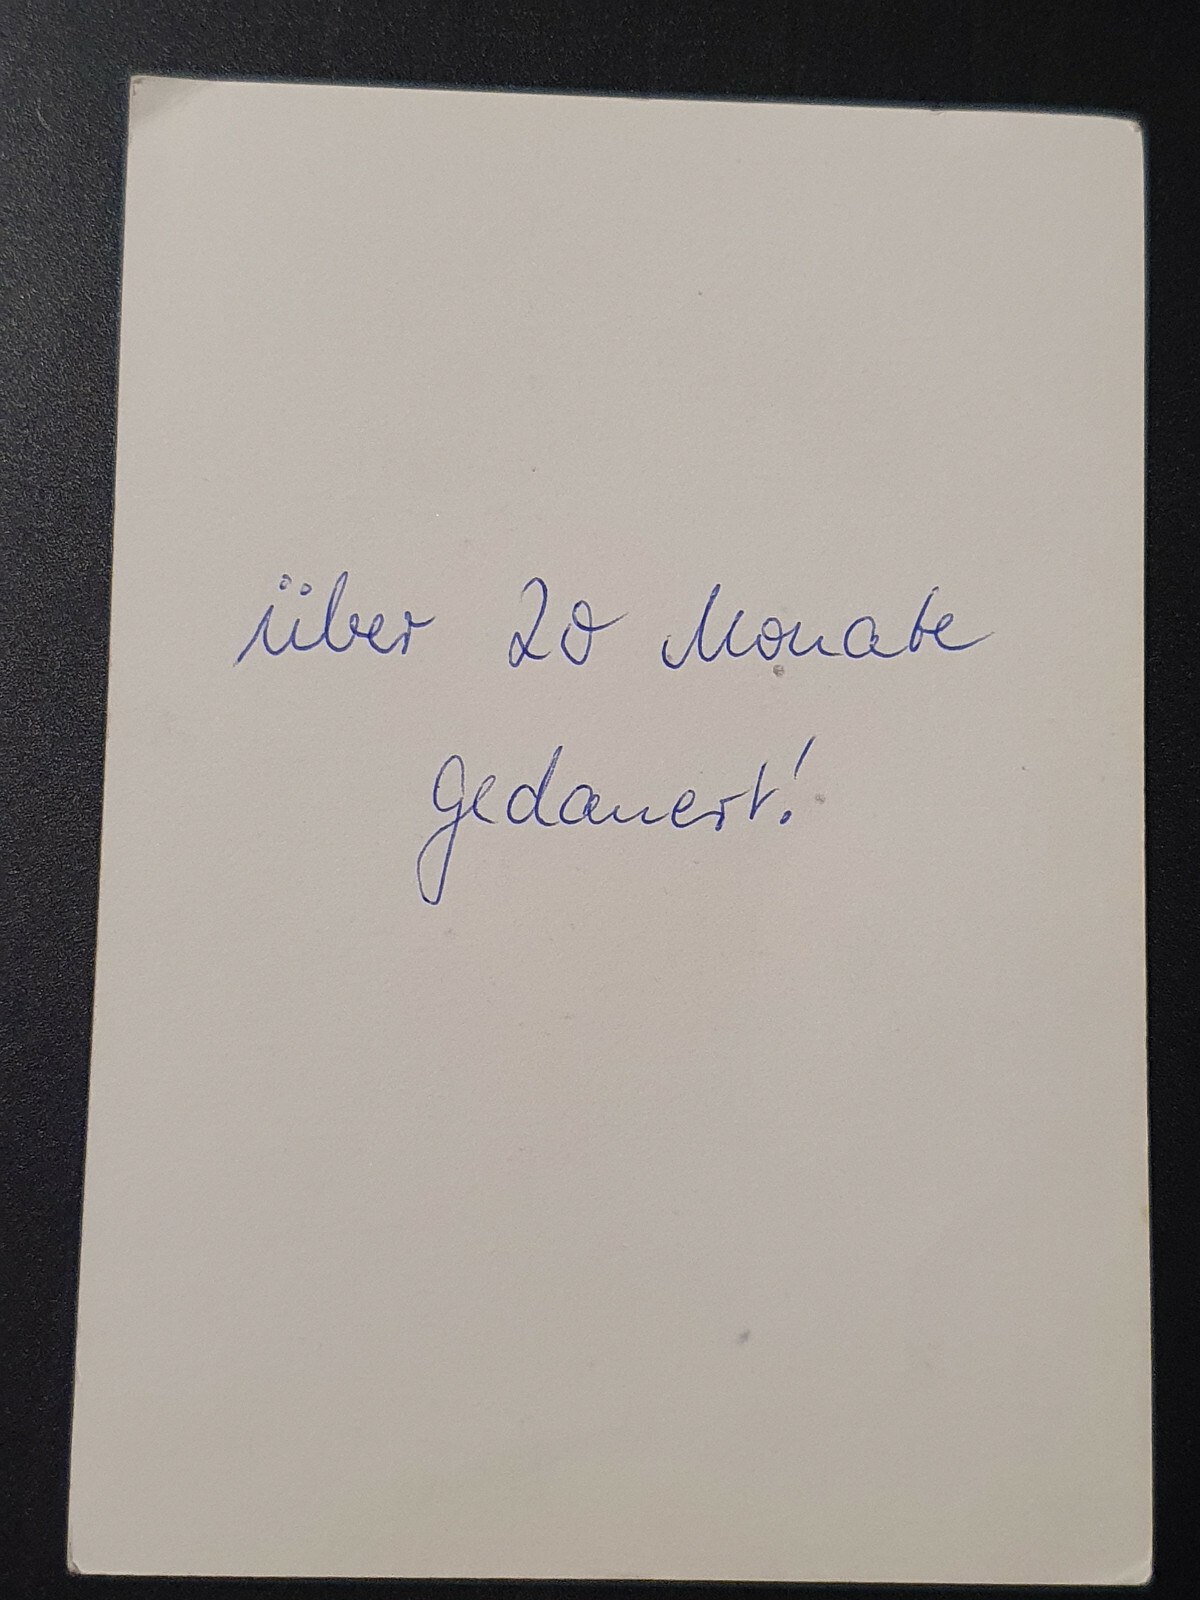 über 20 Monate
gedauert!